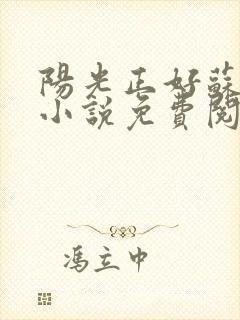 陽光正好蘇
小說免費閱
馮立中